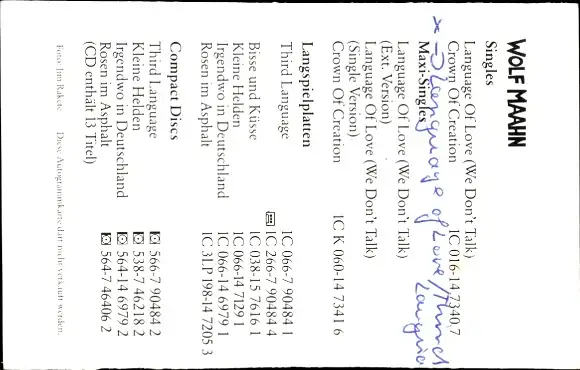 WOLF MAAHN
Singles
Language Of Love (We Don't Talk)
Crown Of Creation 1C 016-14 7340,7
x → Language of Love / Third
Language
Maxi-Singles
Language Of Love (We Don't Talk)
(Ext. Version)
Language Of Love (We Don't Talk)
(Single Version)
Crown Of Creation 1C K 060-14 7341 6
Langspielplatten
Third Language 1C 066-7 90484 1
1C 266-7 90484 4
Bisse und Küsse 1C 038-15 7616 1
Kleine Helden 1C 066-14 7129 1
Irgendwo in Deutschland 1C 066-14 6979 1
Rosen im Asphalt 1C 3LP 198-14 7205 3
Compact Discs
Third Language 566-7 90484 2
Kleine Helden 538-7 46218 2
Irgendwo in Deutschland 564-14 6979 2
Rosen im Asphalt 564-7 46406 2
(CD enthält 13 Titel)
Foto: Jim Rakete Diese Autogrammkarte darf nicht verkauft werden.